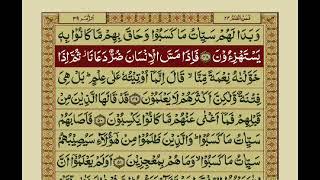 الزمر ٣٩
فمن اظلم ٢٤
وَبَدَا لَهُمْ سَيِّاٰتُ مَا كَسَبُوْا وَحَاقَ بِهِمْ مَّا كَانُوْا بِهٖ
يَسْتَهْزِءُوْنَ ﴿٤٨﴾ فَاِذَا مَسَّ الْاِنْسَانَ ضُرٌّ دَعَانَا ثُمَّ اِذَا
خَوَّلْنٰهُ نِعْمَةً مِّنَّا قَالَ اِنَّمَاۤ اُوْتِيْتُهٗ عَلٰى عِلْمٍ بَلْ هِيَ
فِتْنَةٌ وَّلٰكِنَّ اَكْثَرَهُمْ لَا يَعْلَمُوْنَ ﴿٤٩﴾ قَدْ قَالَهَا الَّذِيْنَ
مِنْ قَبْلِهِمْ فَمَاۤ اَغْنٰى عَنْهُمْ مَّا كَانُوْا يَكْسِبُوْنَ ﴿٥٠﴾ فَاَصَابَهُمْ
سَيِّاٰتُ مَا كَسَبُوْا وَالَّذِيْنَ ظَلَمُوْا مِنْ هٰۤؤُلَاۤءِ سَيُصِيْبُهُمْ
سَيِّاٰتُ مَا كَسَبُوْا وَمَا هُمْ بِمُعْجِزِيْنَ ﴿٥١﴾ اَوَلَمْ يَعْلَمُوْۤا اَنَّ